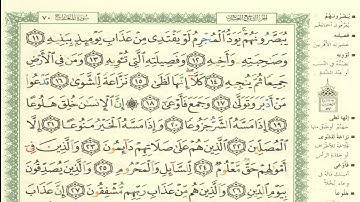 سُورَةُ المَعَارِجِ ٧٠
الجزء التاسع والعشرون
يُبَصَّرُونَهُمْ يَوَدُّ ٱلْمُجْرِمُ لَوْ يَفْتَدِى مِنْ عَذَابِ يَوْمِئِذٍۭ بِبَنِيهِ ﴿١١﴾
وَصَٰحِبَتِهِۦ وَأَخِيهِ ﴿١٢﴾ وَفَصِيلَتِهِ ٱلَّتِى تُـْٔوِيهِ ﴿١٣﴾ وَمَن فِى ٱلْأَرْضِ
جَمِيعًا ثُمَّ يُنجِيهِ ﴿١٤﴾ كَلَّآ إِنَّهَا لَظَىٰ ﴿١٥﴾ نَزَّاعَةً لِّلشَّوَىٰ ﴿١٦﴾ تَدْعُوا۟
مَنْ أَدْبَرَ وَتَوَلَّىٰ ﴿١٧﴾ وَجَمَعَ فَأَوْعَىٰٓ ﴿١٨﴾ إِنَّ ٱلْإِنسَٰنَ خُلِقَ هَلُوعًا
﴿١٩﴾ إِذَا مَسَّهُ ٱلشَّرُّ جَزُوعًا ﴿٢٠﴾ وَإِذَا مَسَّهُ ٱلْخَيْرُ مَنُوعًا ﴿٢١﴾ إِلَّا
ٱلْمُصَلِّينَ ﴿٢٢﴾ ٱلَّذِينَ هُمْ عَلَىٰ صَلَاتِهِمْ دَآئِمُونَ ﴿٢٣﴾ وَٱلَّذِينَ فِىٓ
أَمْوَٰلِهِمْ حَقٌّ مَّعْلُومٌ ﴿٢٤﴾ لِّلسَّآئِلِ وَٱلْمَحْرُومِ ﴿٢٥﴾ وَٱلَّذِينَ يُصَدِّقُونَ
بِيَوْمِ ٱلدِّينِ ﴿٢٦﴾ وَٱلَّذِينَ هُم مِّنْ عَذَابِ رَبِّهِم مُّشْفِقُونَ ﴿٢٧﴾ إِنَّ عَذَابَ
يُبَصَّرُونَهُمْ
فصيلته
عشيرته الأقربين
تؤويه